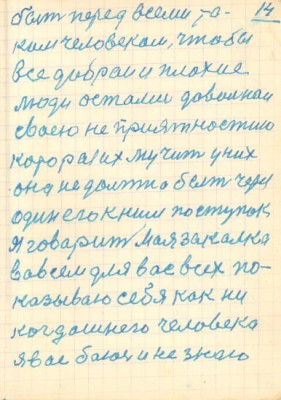 14
быт перед всеми, та-
ким человеком, чтобы
все добраи и плохие
люди остали довольнаи
своею не приятностию
котораі их мучит у них
она не должна быт через
один его к ним поступок
Я говарит Мая закалка
вовсем для вас всех по-
казываю себя как ни
когдашнего человека
я вас баюс и не знаю